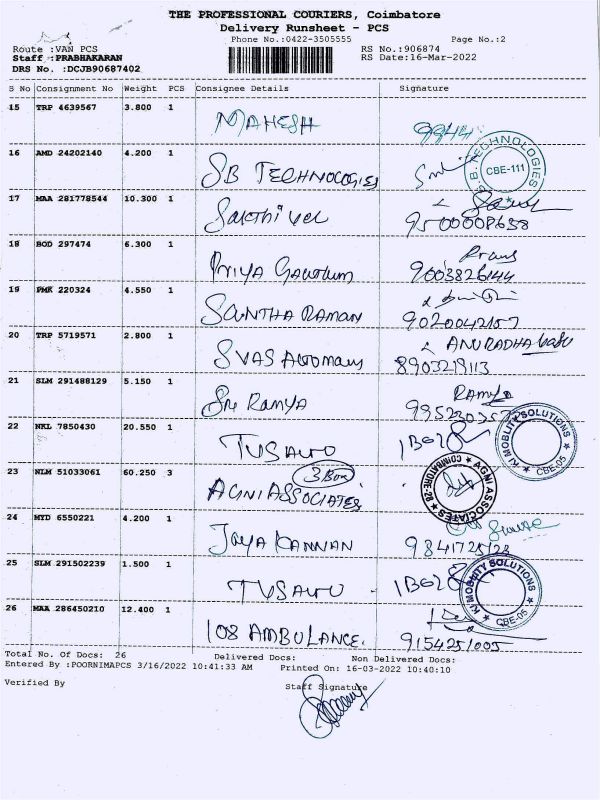 THE PROFESSIONAL COURIERS, Coimbatore
Delivery Runsheet - PCS
Phone No.:0422-3505555 Page No.:2
Route :VAN PCS RS No.:906874
Staff :PRABHAKARAN RS Date:16-Mar-2022
DRS No. :DCJB90687402
S No Consignment No Weight PCS Consignee Details Signature
15 TRP 4639567 3.800 1 MAHESH 9944
16 AMD 24202140 4.200 1 SB TECHNOLOGIES
S.B. TECHNOLOGIES CBE-111
17 MAA 281778544 10.300 1 Sakthivel 9500008658
18 BOD 297474 6.300 1 PRIYA Gautham 9003826144
19 PMK 220324 4.550 1 SANTHA RAMAN 9020042157
20 TRP 5719571 2.800 1 SVAS Automaus ANURADHA
8903219113
21 SLM 291488129 5.150 1 Sri RAMYA RAMYA
22 NKL 7850430 20.550 1 TVSAUTO
KI MOBLITY SOLUTIONS CBE-05
23 NLM 51033061 60.250 3 AGNI ASSOCIATES 3 Box
AGNI ASSOCIATES COIMBATORE-28
24 MYD 6550221 4.200 1 JAYA KANNAN
25 SLM 291502239 1.500 1 TVSAUTO
KI MOBLITY SOLUTIONS CBE-05
26 MAA 286450210 12.400 1 108 AMBULANCE. 9154251005
Total No. Of Docs: 26 Delivered Docs: Non Delivered Docs:
Entered By :POORNIMAPCS 3/16/2022 10:41:33 AM Printed On: 16-03-2022 10:40:10
Verified By Staff Signature